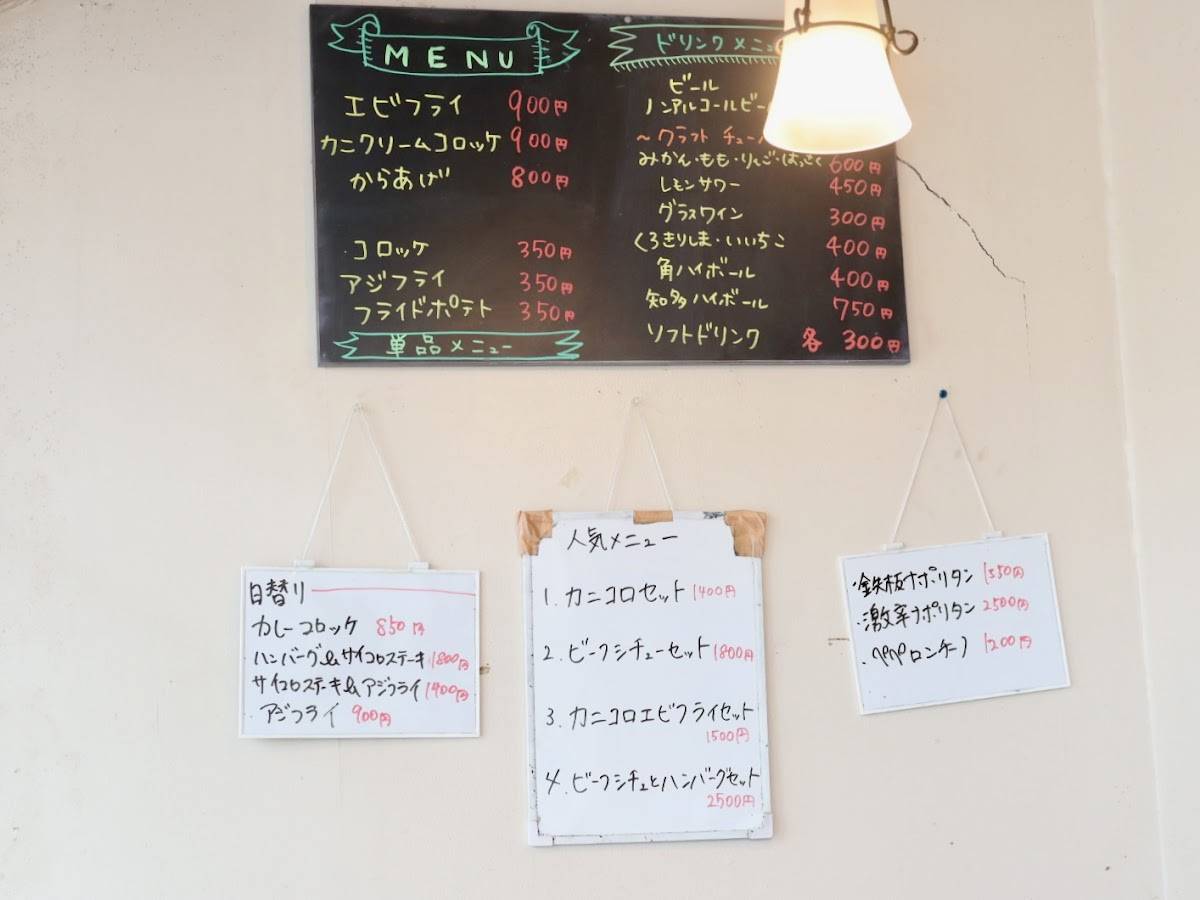 MENU
エビフライ 900円
カニクリームコロッケ 900円
からあげ 800円
コロッケ 350円
アジフライ 350円
フライドポテト 350円
単品メニュー
ドリンクメニュ
ビール
ノンアルコールビー
～クラフト チュー
みかん・もも・りんご・はっさく 600円
レモンサワー 450円
グラスワイン 300円
くろきりしま・いいちこ 400円
角ハイボール 400円
知多ハイボール 750円
ソフトドリンク 各 300円
日替り
カレーコロッケ 850円
ハンバーグ&サイコロステーキ 1800円
サイコロステーキ&アジフライ 1400円
アジフライ 900円
人気メニュー
1. カニコロセット 1400円
2. ビーフシチューセット 1800円
3. カニコロエビフライセット
1500円
4. ビーフシチュとハンバーグセット
2500円
・鉄板ナポリタン 1550円
・激辛ナポリタン 2500円
・ペペロンチーノ 1200円